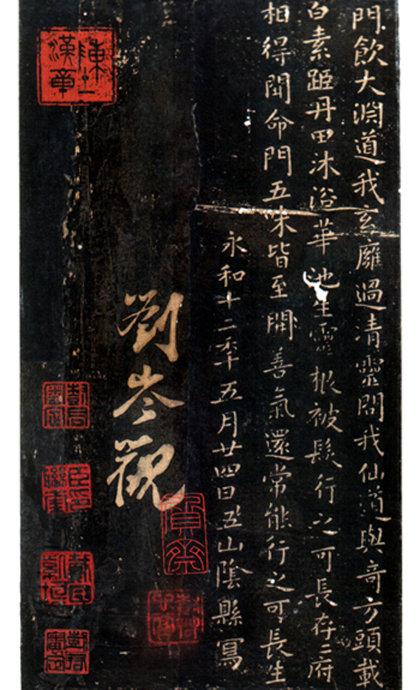 門飲大淵道我玄廱過清靈問我仙道與奇方頭載
白素距丹田沐浴華池生靈根被髮行之可長存二府
相得開命門五味皆至開善氣還常能行之可長生
永和十二年五月廿四日五山陰縣寫
劉岑觀
陳
漢章